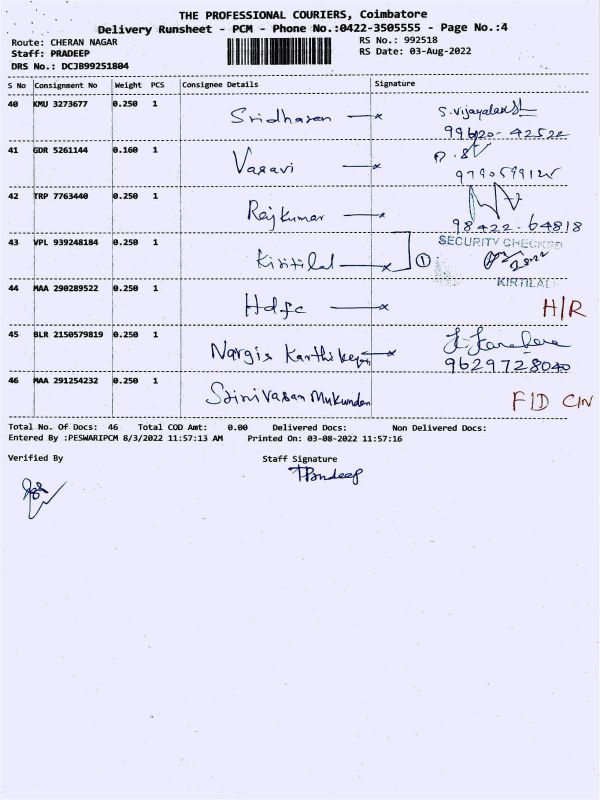 THE PROFESSIONAL COURIERS, Coimbatore
Delivery Runsheet - PCM - Phone No.:0422-3505555 - Page No.:4
Route: CHERAN NAGAR RS No.: 992518
Staff: PRADEEP RS Date: 03-Aug-2022
DRS No.: DCJB99251804
S No Consignment No Weight PCS Consignee Details Signature
40 KMU 3273677 0.250 1 Sridharan S. Vijayalaksh
99620-42522
41 GDR 5261144 0.160 1 Vasavi
9790599125
42 TRP 7763440 0.250 1 Rajkumar
98422-64818
43 VPL 939248184 0.250 1 Kiritilal 1 SECURITY CHECKED
KIRTILAL
44 MAA 290289522 0.250 1 Hdfc H/R
45 BLR 2150579819 0.250 1 Nargis Karthikeyan
9629728040
46 MAA 291254232 0.250 1 Srinivasan Mukundan F/D CIN
Total No. Of Docs: 46 Total COD Amt: 0.00 Delivered Docs: Non Delivered Docs:
Entered By :PESWARIPCM 8/3/2022 11:57:13 AM Printed On: 03-08-2022 11:57:16
Verified By Staff Signature